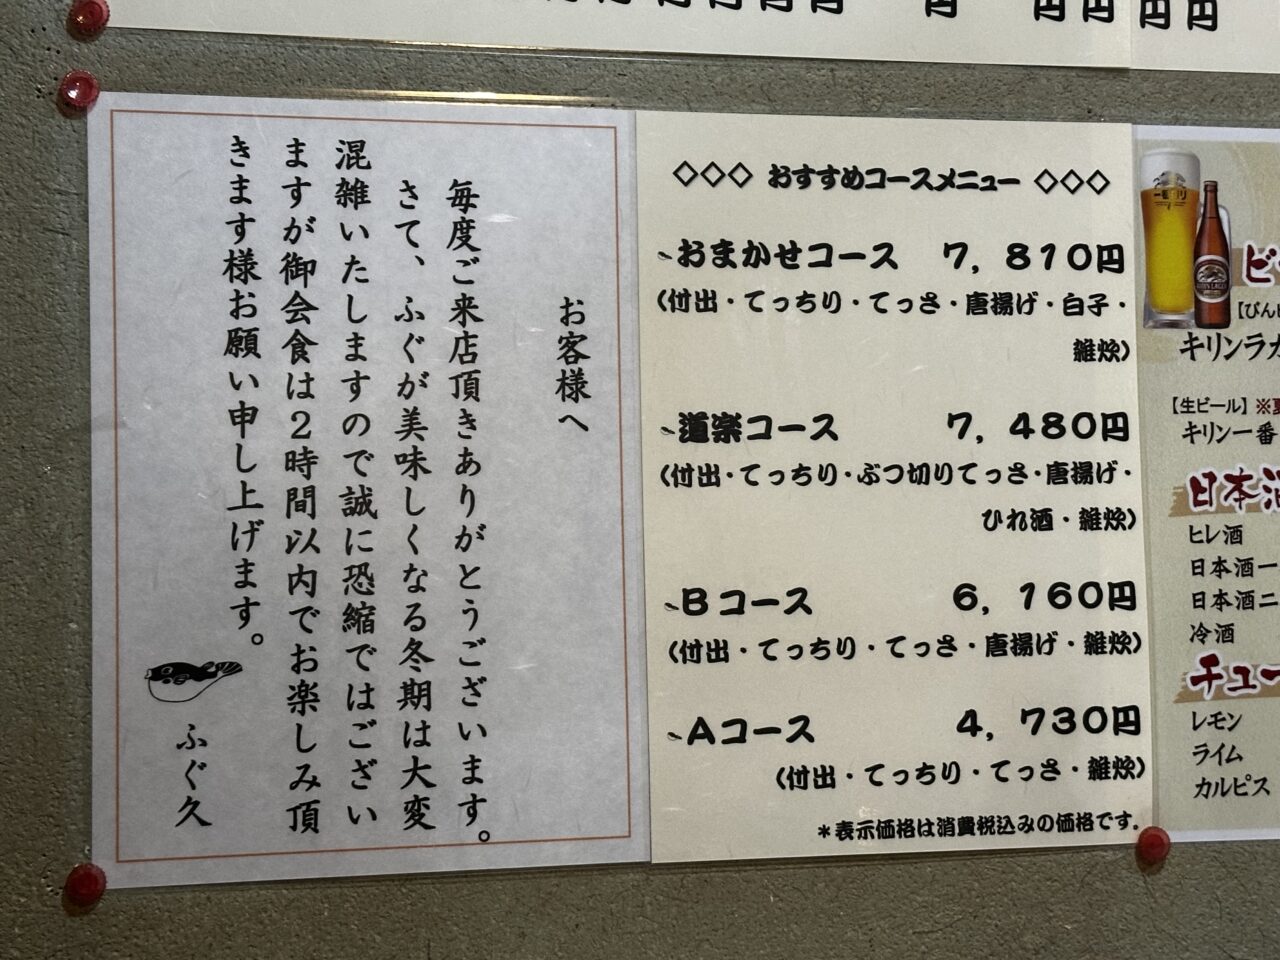 円 円 円 円 円
お客様へ
毎度ご来店頂きありがとうございます。
さて、ふぐが美味しくなる冬期は大変
混雑いたしますので誠に恐縮ではござい
ますが御会食は２時間以内でお楽しみ頂
きます様お願い申し上げます。
ふぐ久
◇◇◇ おすすめコースメニュー ◇◇◇
おまかせコース 7,810円
（付出・てっちり・てっさ・唐揚げ・白子・
雑炊）
道楽コース 7,480円
（付出・てっちり・ぶつ切りてっさ・唐揚げ・
ひれ酒・雑炊）
Bコース 6,160円
（付出・てっちり・てっさ・唐揚げ・雑炊）
Aコース 4,730円
（付出・てっちり・てっさ・雑炊）
＊表示価格は消費税込みの価格です.
【びん
キリンラガ
【生ビール】※
キリン一番
日本酒
ヒレ酒
日本酒一
日本酒二
冷酒
チュー
レモン
ライム
カルピス